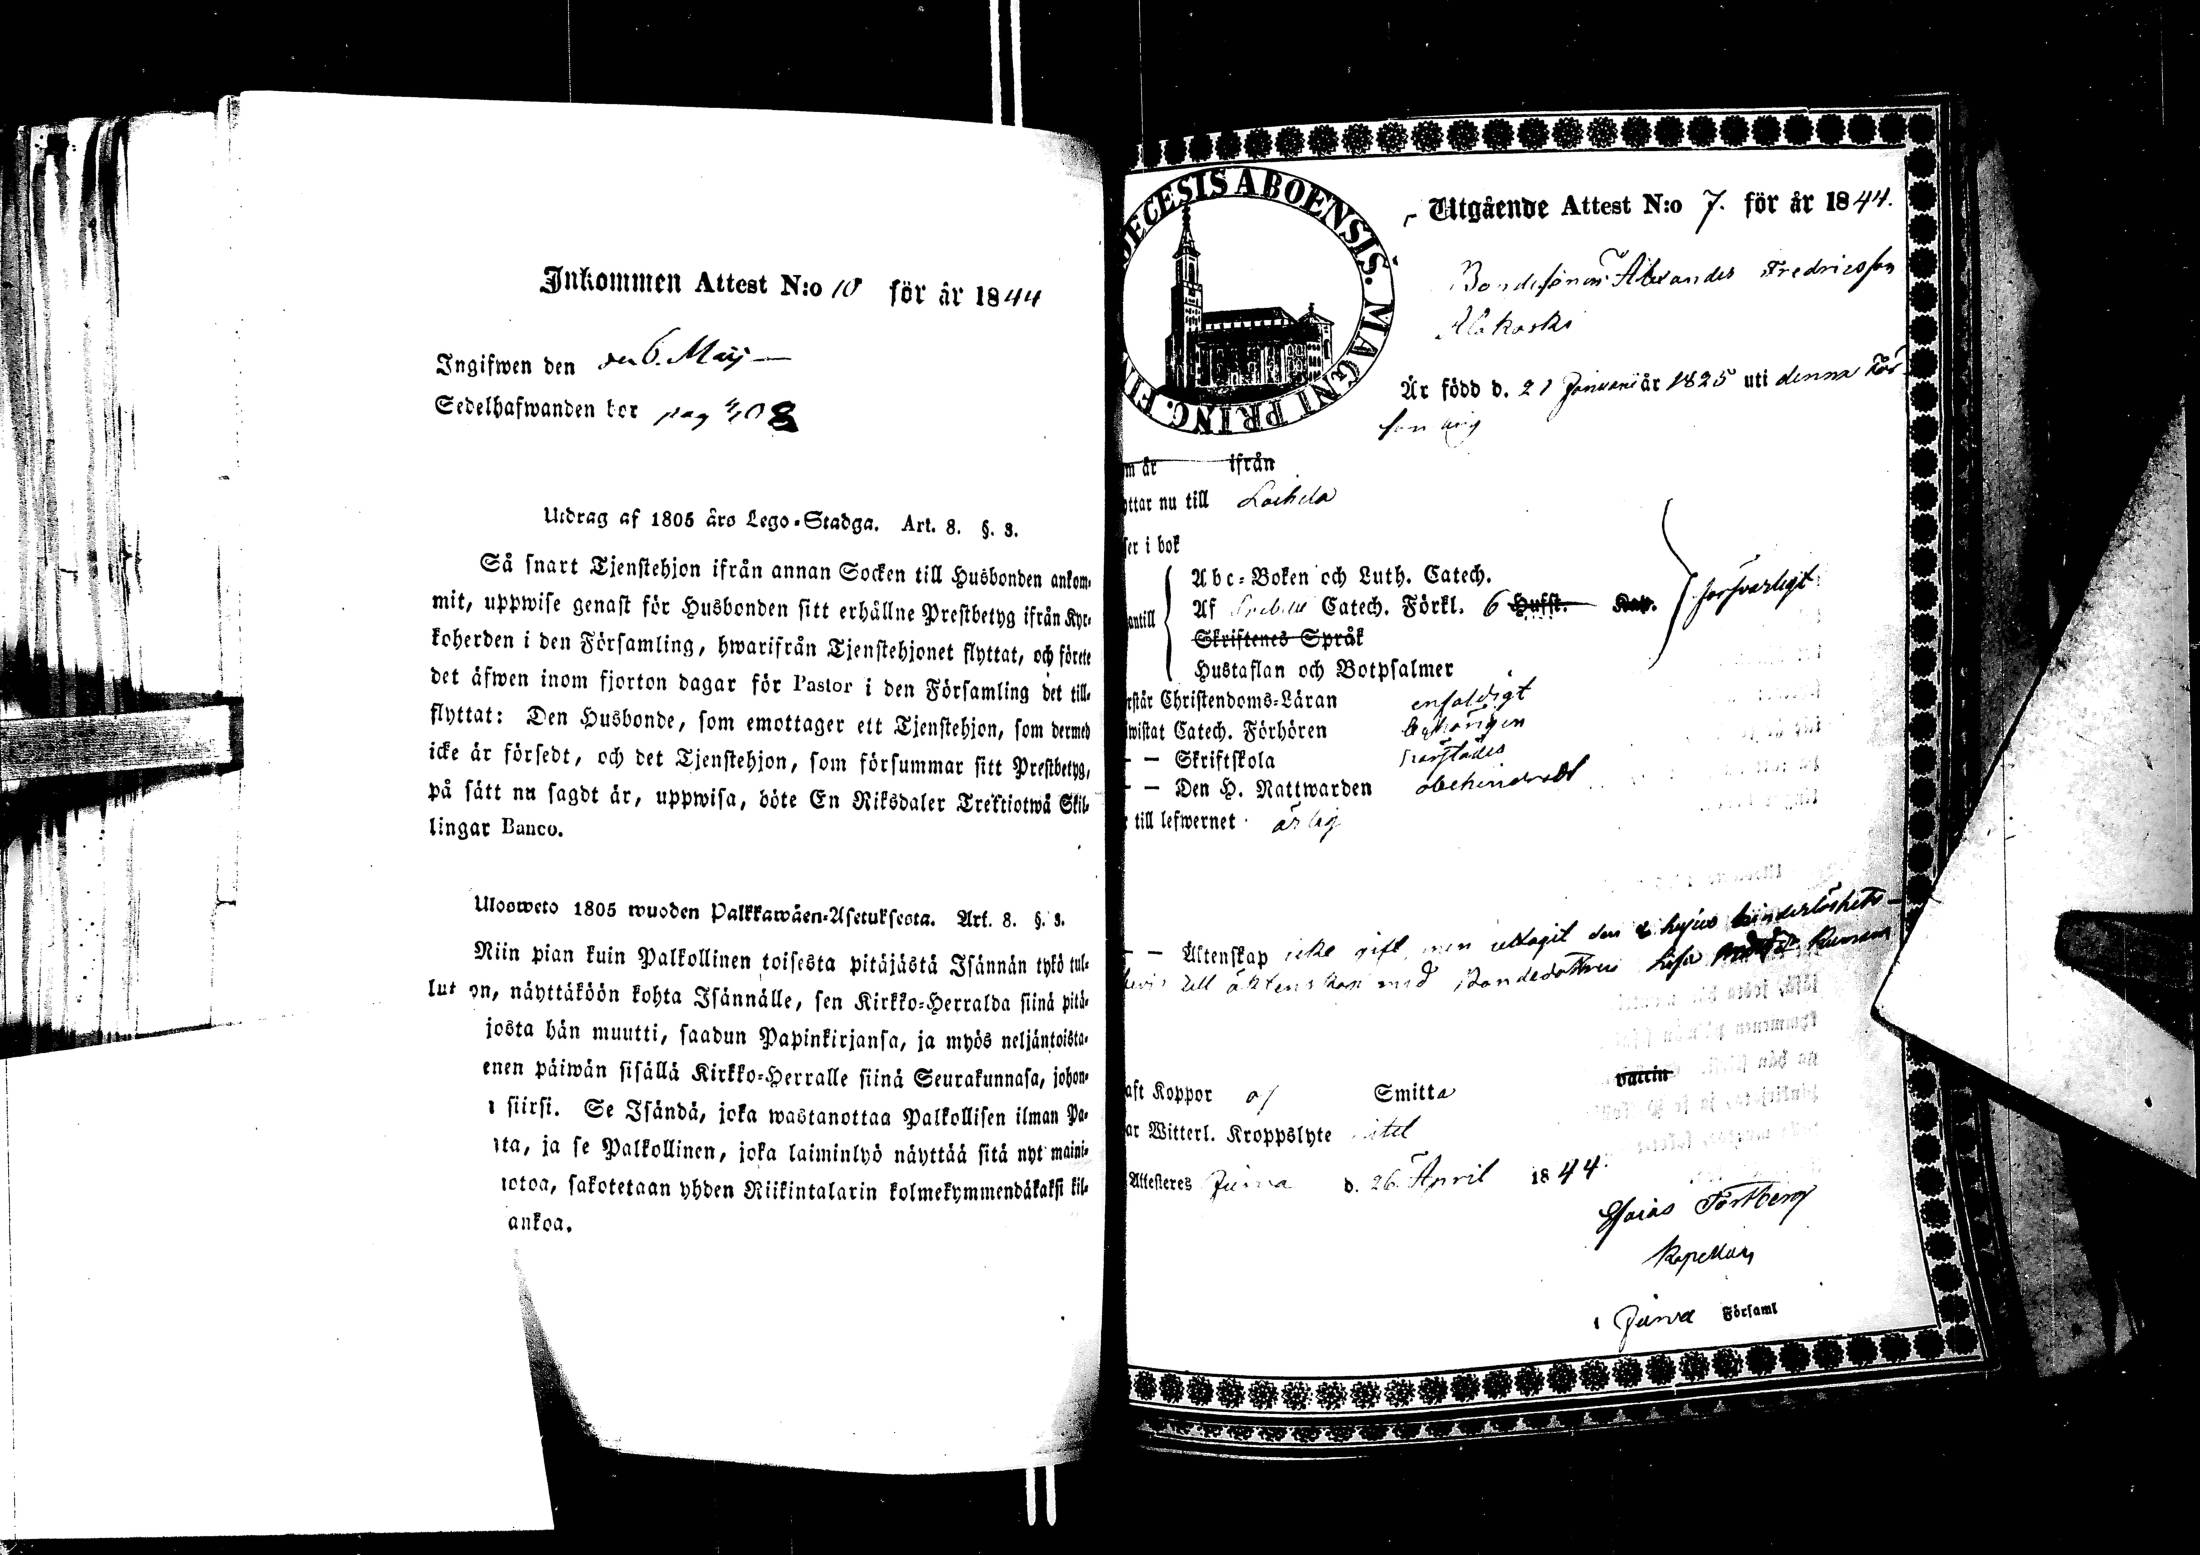 Inkommen Attest N:o 10 för år 1844
Ingifwen den den 6. Maij
Sedelhafwanden bor pag 408
Utdrag af 1805 års Lego-Stadga. Art. 8. §. 3.
Så snart Tjenstehjon ifrån annan Socken till Husbonden ankom-
mit, uppwise genast för Husbonden sitt erhållne Prestbetyg ifrån Kyr-
koherden i den Församling, hwarifrån Tjenstehjonet flyttat, och förete
det äfwen inom fjorton dagar för Pastor i den Församling det till-
flyttat: Den Husbonde, som emottager ett Tjenstehjon, som dermed
icke är försedt, och det Tjenstehjon, som försummar sitt Prestbetyg,
på sätt nu sagdt är, uppwisa, böte En Riksdaler Trettiotwå Skil-
lingar Banco.
Ulosweto 1805 wuoden Palkkawäen-Asetuksesta. Art. 8. §. 3.
Niin pian kuin Palkollinen toisesta pitäjästä Isännän tykö tul-
lut on, näyttäköön kohta Isännälle, sen Kirkko-Herralda siinä pitä-
josta hän muutti, saadun Papinkirjansa, ja myös neljäntoista-
enen päiwän sisällä Kirkko-Herralle siinä Seurakunnasa, johon-
siirsi. Se Isändä, joka wastanottaa Palkollisen ilman Pa-
ta, ja se Palkollinen, joka laiminlyö näyttää sitä nyt maini-
otoa, sakotetaan yhden Riikintalarin kolmekymmendäkaksi kil-
ankoa.
DECESIS ABOENSIS. MAGNI PRINC. FI
Utgående Attest N:o 7. för år 1844.
Bondesonen Alexander Fredricsson
Alakoski
Är född d. 21 Januari år 1825 uti denna För-
samling
m år ifrån
ttar nu till Laihela
ser i bok
Abc-Boken och Luth. Catech.
antill Af Catech. Förkl. 6 Hufst. Kap. försvarligt
Skriftenes Språk
Hustaflan och Botpsalmer
rstår Christendoms-Läran enfaldigt
wistat Catech. Förhören behörigen
– – Skriftskola
– – Den H. Nattwarden obehindrad
till lefwernet ärlig
– – Äktenskap icke gift, men uttagit den hinderlöshets-
bevis till äktenskap med Bondedottren Lisa
aft Koppor af Smitta vaccin
ar Witterl. Kroppslyte intet
Attesteres Jurva d. 26 April 1844.
Esaias Forstberg
Kapellan
i Jurva Församl